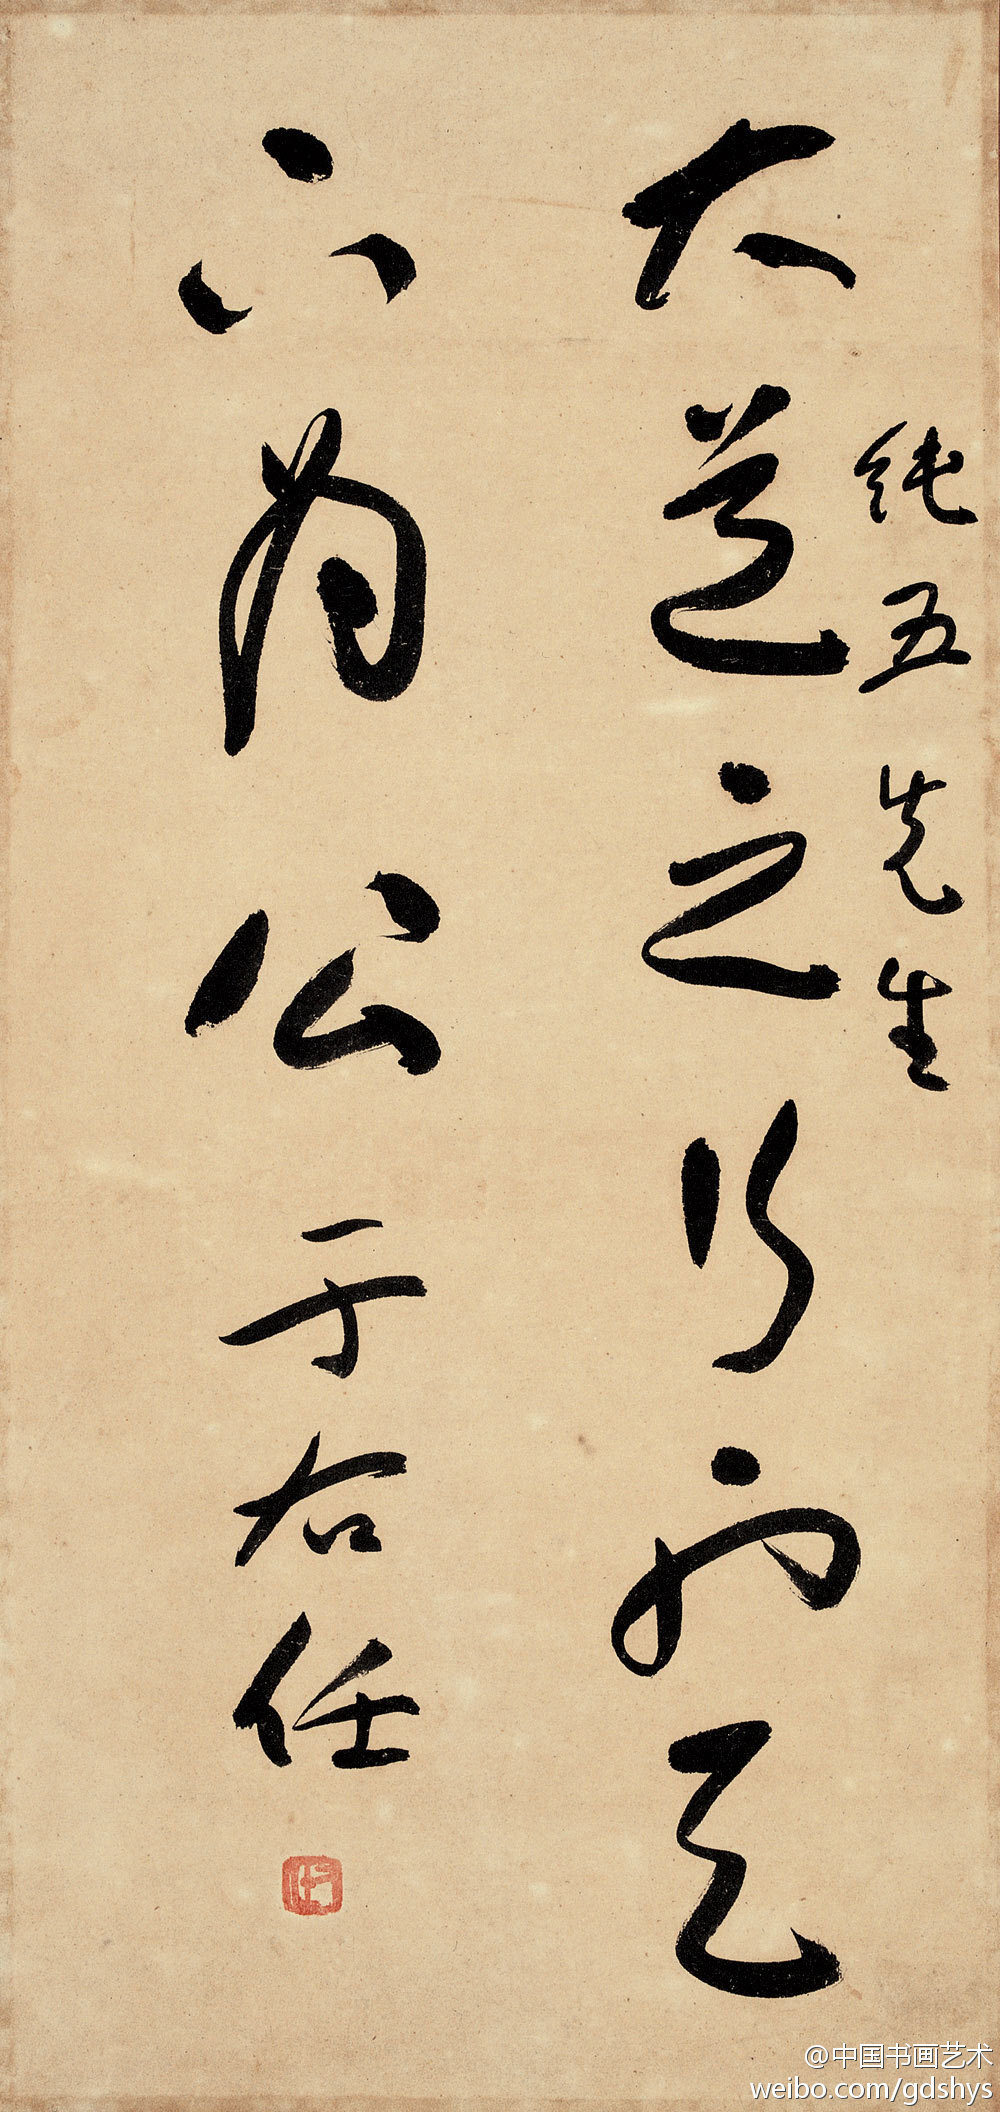 纯五先生
大道之行也天
下为公于右任
@中国书画艺术
weibo.com/gdshys